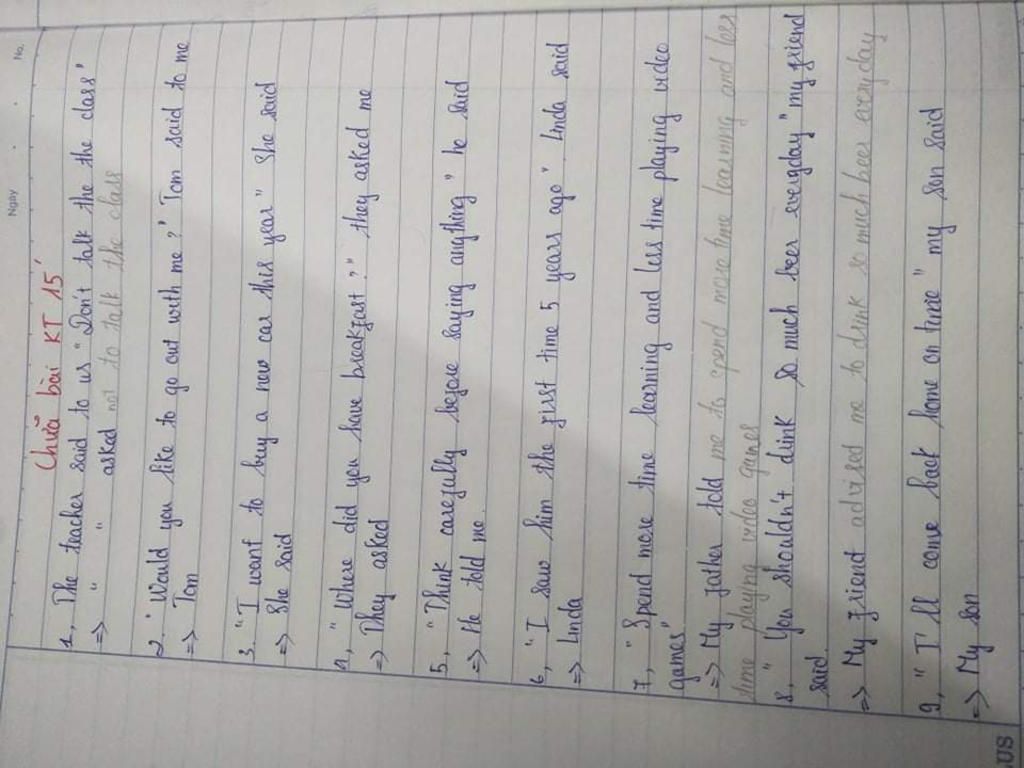 Ngày No.
Chữa bài KT 15'
1, The teacher said to us "Don't talk the the class"
=> " " asked not to talk the class
2. "Would you like to go out with me?" Tom said to me
=> Tom
3. "I want to buy a new car this year" She said
=> She said
4, "Where did you have breakfast?" they asked me
=> They asked
5, "Think carefully before saying anything" he said
=> He told me
6, "I saw him the first time 5 years ago". Linda said
=> Linda
7, "Spend more time learning and less time playing video
games"
=> My father told me to spend more time learning and less
time playing video games
8, "You shouldn't drink so much beer everyday" my friend
said.
=> My friend advised me to drink so much beer everyday
9, "I'll come back home on time" my son said
=> My son
US